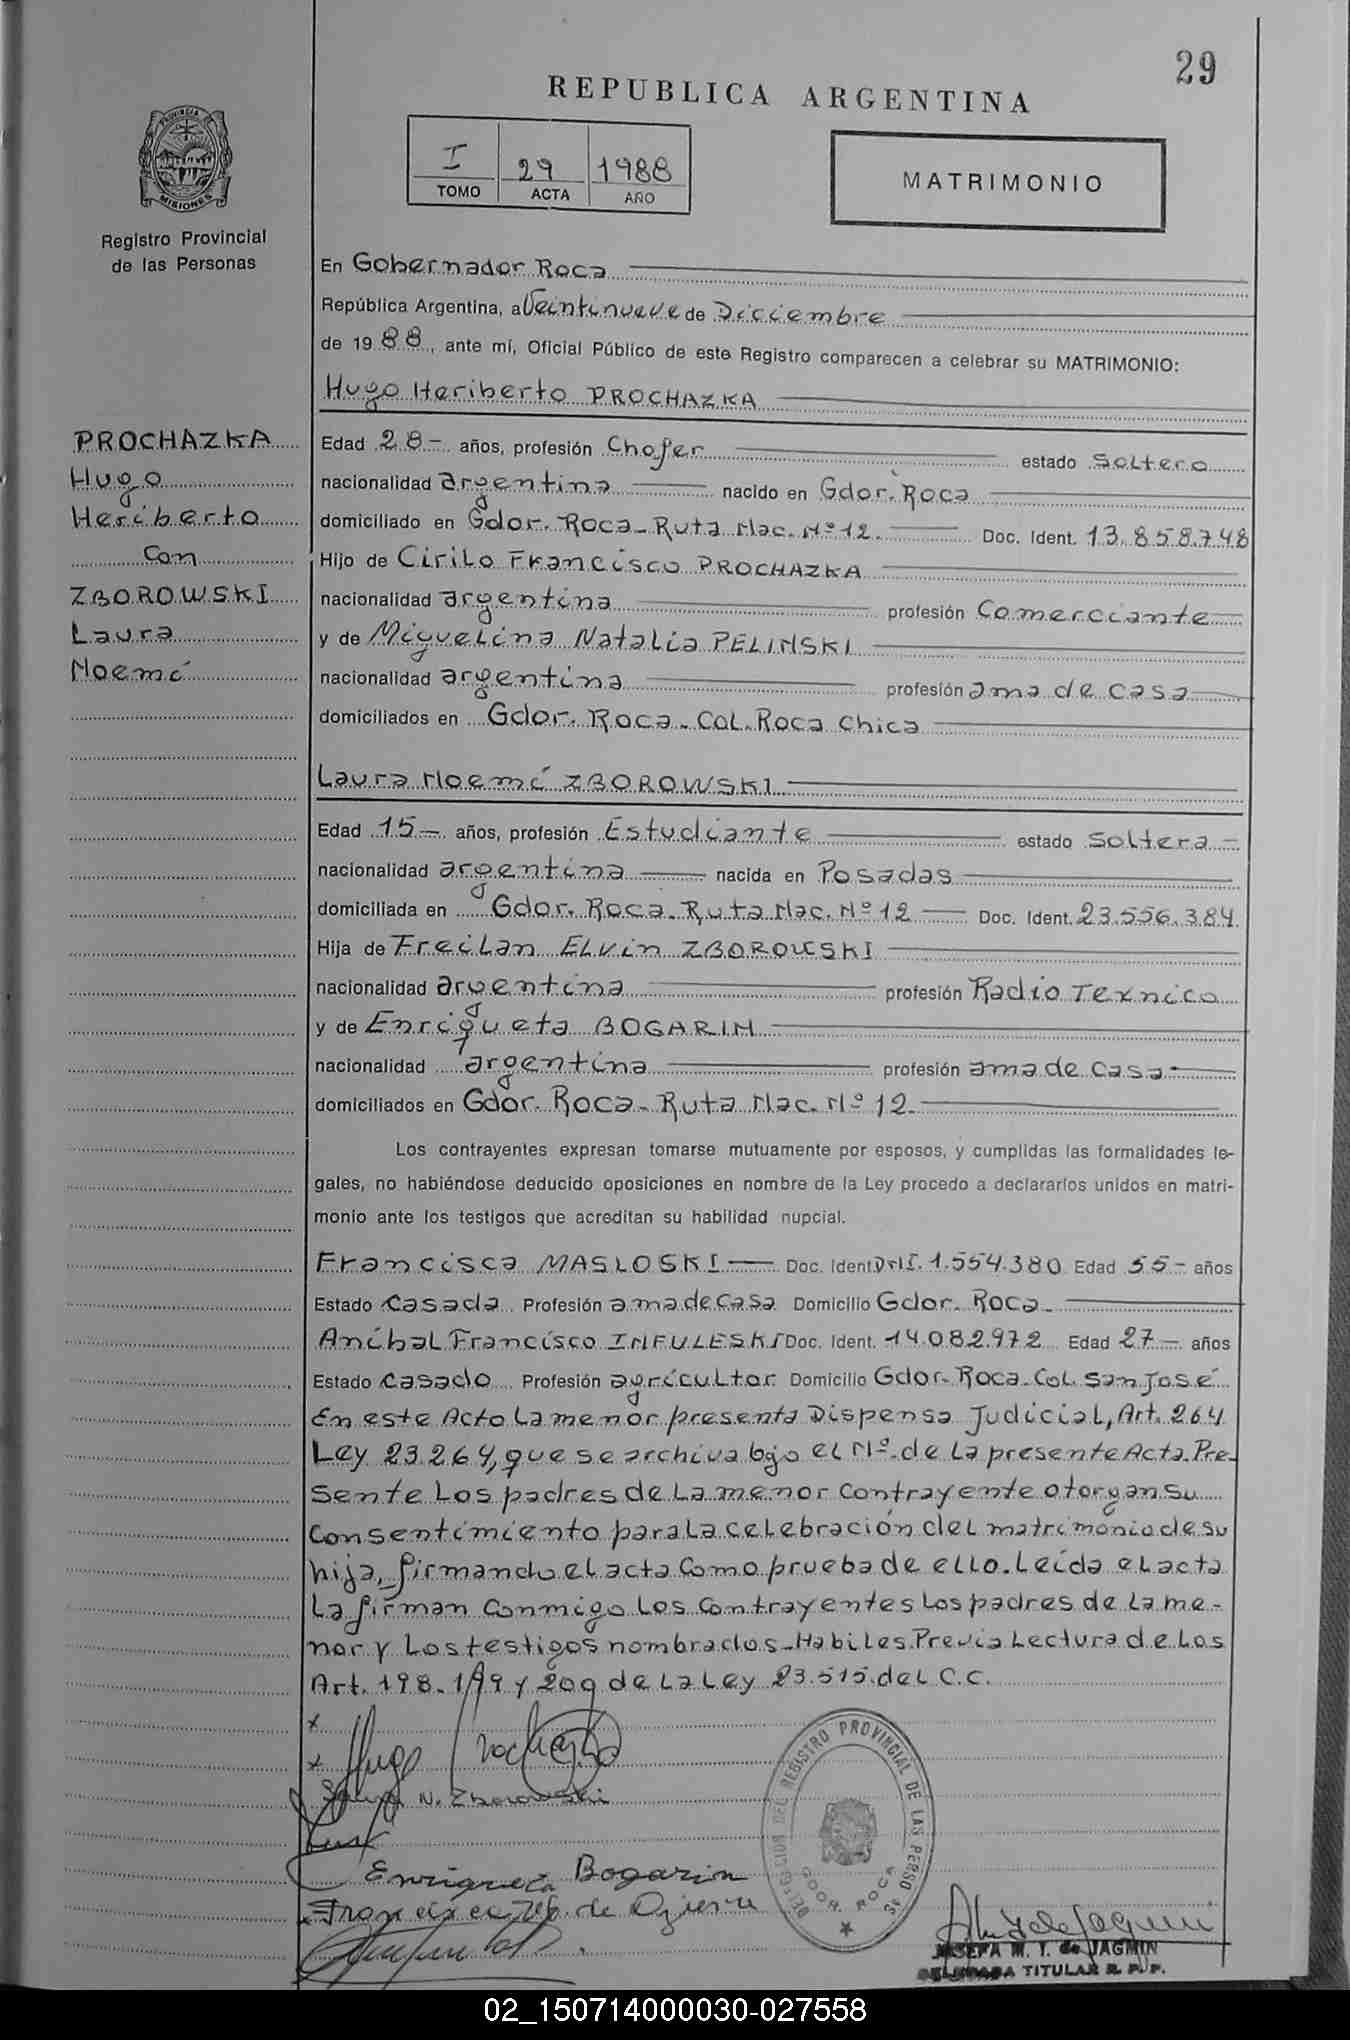 29
REPUBLICA ARGENTINA
PROVINCIA DE
MISIONES
I 29 1988
TOMO ACTA AÑO
MATRIMONIO
Registro Provincial
de las Personas
En Gobernador Roca
República Argentina, a Veintinueve de Diciembre
de 1988, ante mí, Oficial Público de este Registro comparecen a celebrar su MATRIMONIO:
Hugo Heriberto PROCHAZKA
PROCHAZKA
Hugo
Heriberto
Con
ZBOROWSKI
Laura
Noemí
Edad 28- años, profesión Chofer estado Soltero
nacionalidad argentina nacido en Gdor. Roca
domiciliado en Gdor. Roca - Ruta Nac. Nº 12. Doc. Ident. 13.858.748
Hijo de Cirilo Francisco PROCHAZKA
nacionalidad argentina profesión Comerciante
y de Miguelina Natalia PELINSKI
nacionalidad argentina profesión ama de casa
domiciliados en Gdor. Roca - Col. Roca Chica
Laura Noemí ZBOROWSKI
Edad 15- años, profesión Estudiante estado Soltera -
nacionalidad argentina nacida en Posadas
domiciliada en Gdor. Roca - Ruta Nac. Nº 12 Doc. Ident. 23.556.384
Hija de Freilan ELVIN ZBOROWSKI
nacionalidad argentina profesión Radio Texnico
y de Enriqueta BOGARIN
nacionalidad argentina profesión ama de casa
domiciliados en Gdor. Roca - Ruta Nac. Nº 12.
Los contrayentes expresan tomarse mutuamente por esposos, y cumplidas las formalidades le-
gales, no habiéndose deducido oposiciones en nombre de la Ley procedo a declararlos unidos en matri-
monio ante los testigos que acreditan su habilidad nupcial.
Francisca MASLOSKI Doc. Ident. DNI. 1.554.380 Edad 55- años
Estado Casada Profesión ama de casa Domicilio Gdor. Roca -
Aníbal Francisco INFULESKI Doc. Ident. 14.082.972 Edad 27 - años
Estado Casado Profesión agricultor Domicilio Gdor. Roca - Col. San José
En este Acto la menor presenta Dispensa Judicial, Art. 264
Ley 23.264, que se archiva bjo el Nº. de la presente Acta. Pre-
sente los padres de la menor contrayente otorgan su
Consentimiento para la celebración del matrimonio de su
hija, firmando el acta como prueba de ello. Leída el acta
la firman conmigo los contrayentes los padres de la me-
nor y los testigos nombrados - Habiles. Previa lectura de los
Art. 198. 199 y 209 de la Ley 23.515. del C.C.
Hugo Prochazka
Laura N. Zborowski
Enriqueta Bogarin
DELEGACION DEL REGISTRO PROVINCIAL DE LAS PERSONAS
GDOR. ROCA
JOSEFA M. T. de JAGMIN
DELEGADA TITULAR R. P. P.
02_150714000030-027558